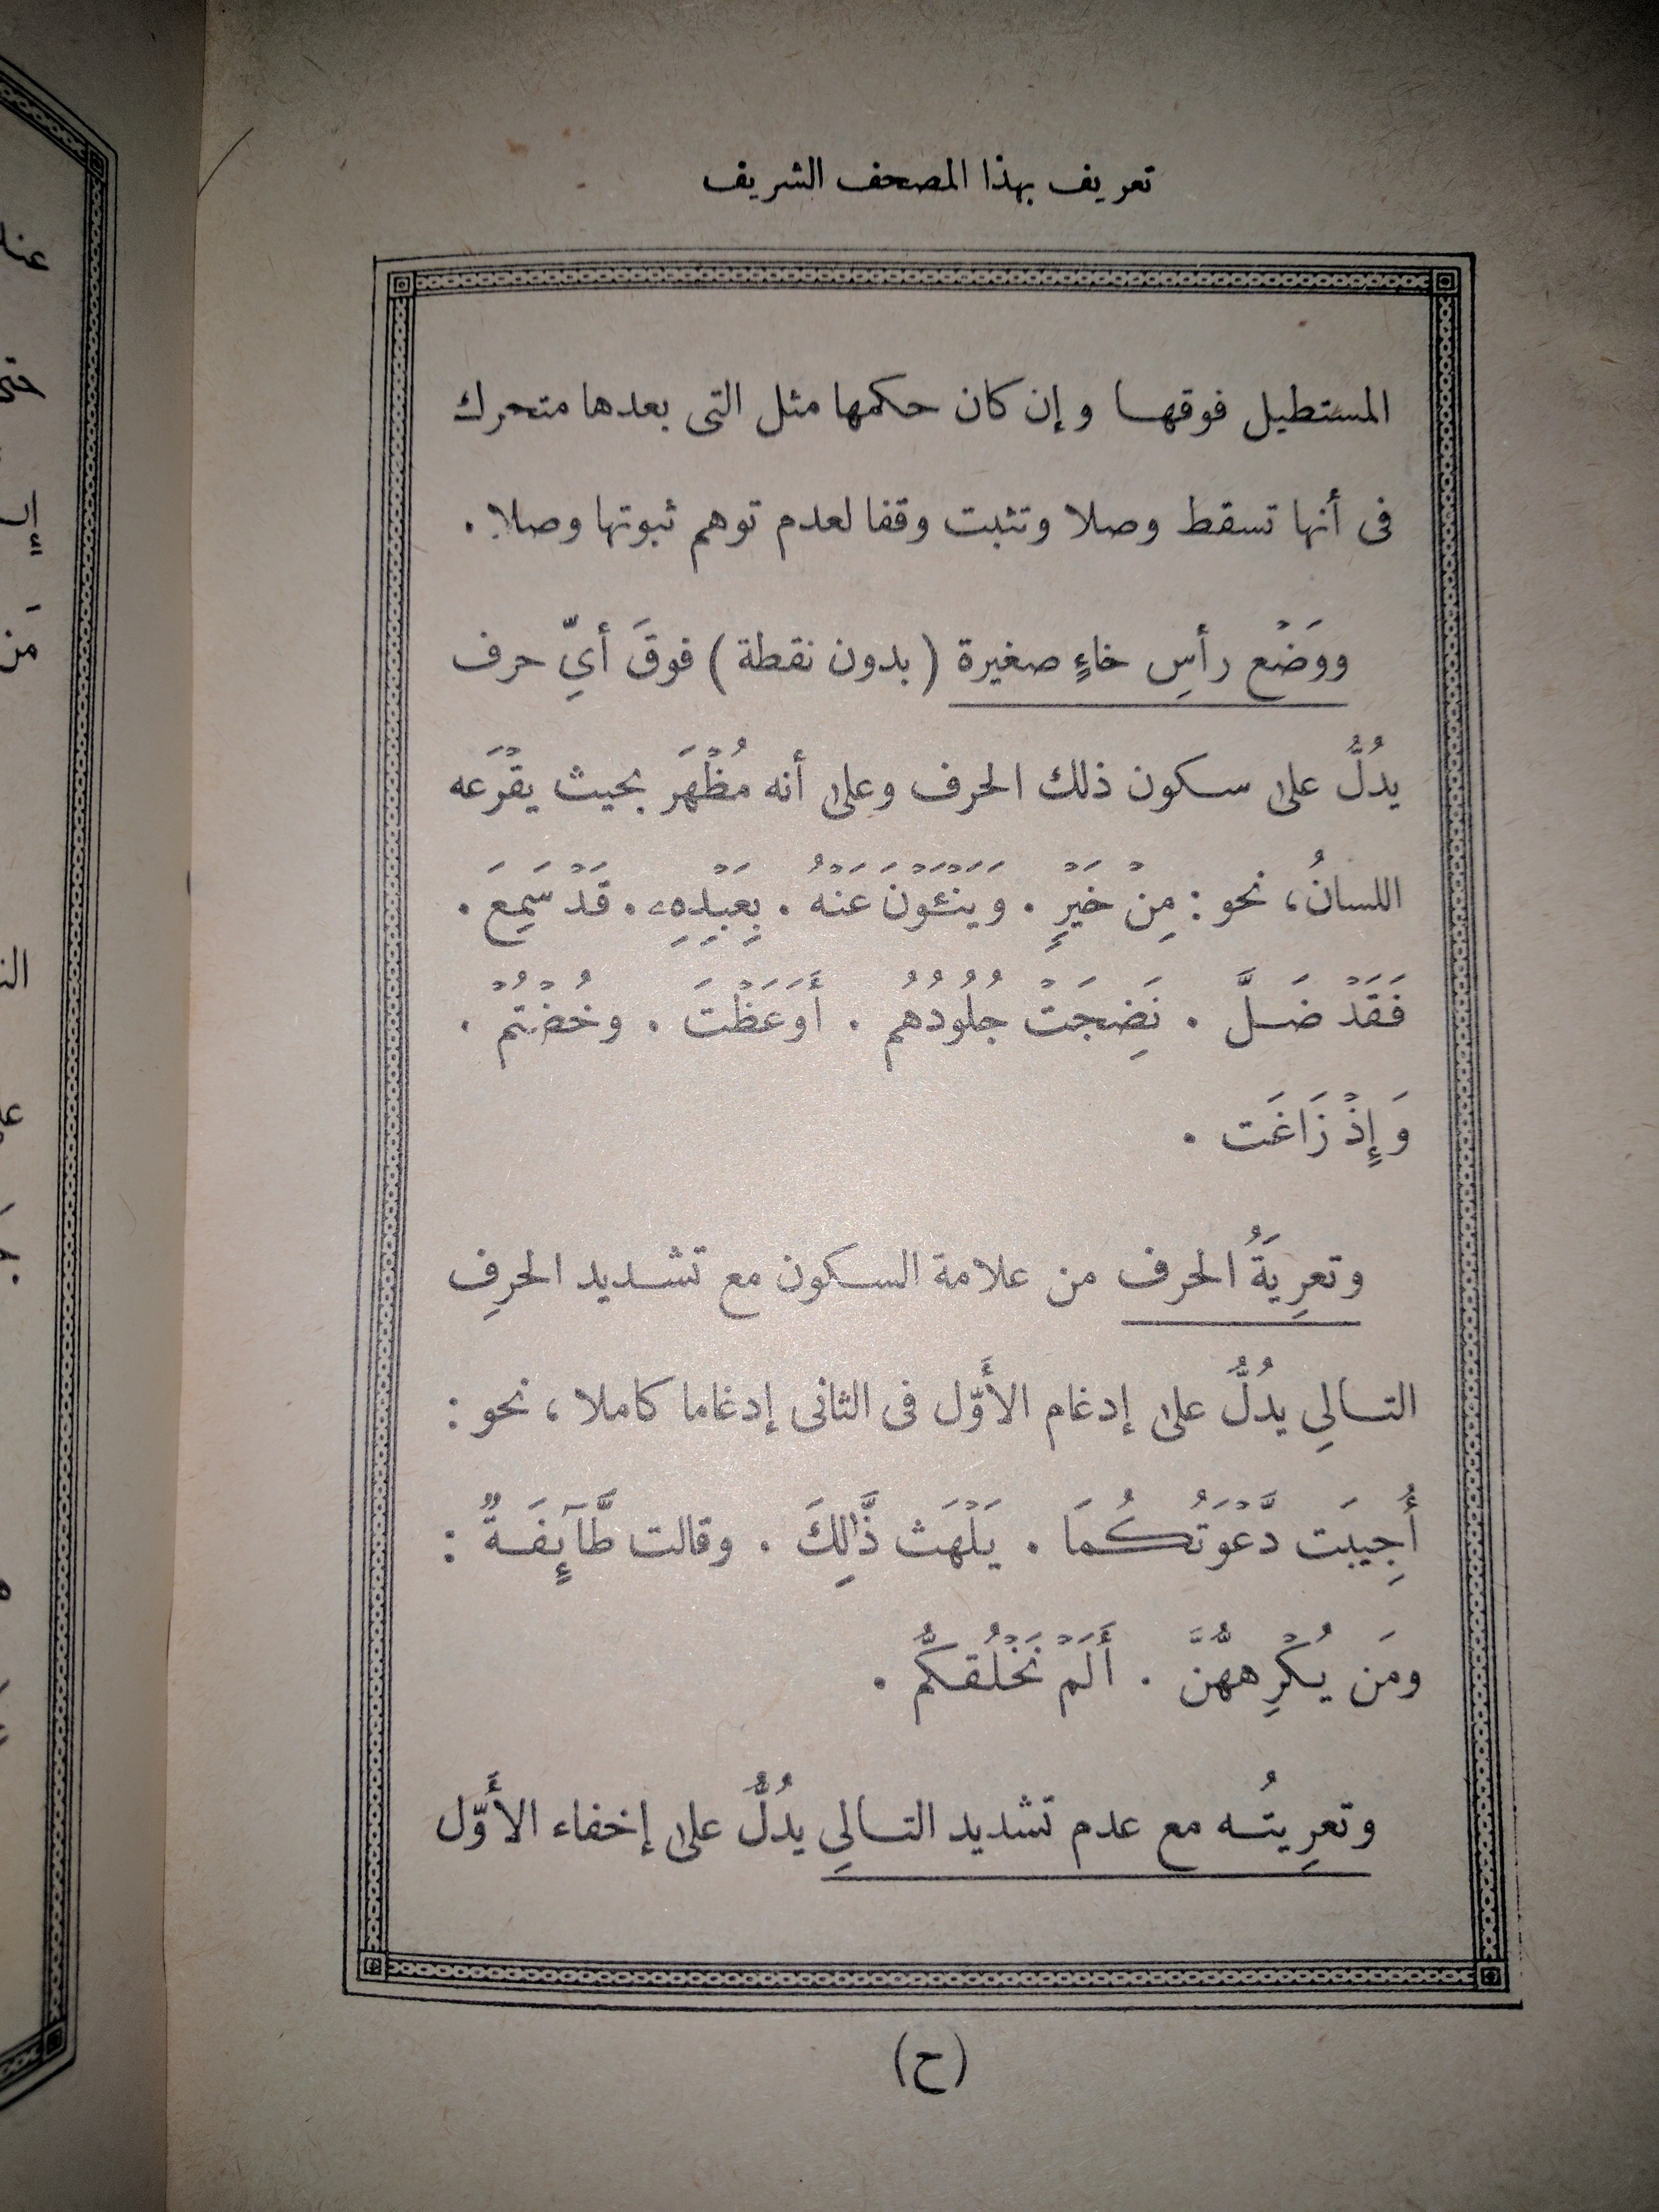 تعريف بهذا المصحف الشريف
المستطيل فوقها وإن كان حكمها مثل التى بعدها متحرك
فى أنها تسقط وصلا وتثبت وقفا لعدم توهم ثبوتها وصلا .
ووَضْع رأسِ خاءٍ صغيرة ( بدون نقطة ) فوقَ أىِّ حرف
يدُلُّ على سكون ذلك الحرف وعلى أنه مُظْهَر بحيث يقْرَعه
اللسانُ، نحو : مِنْ خَيْرٍ . وَيَنْـَٔوْنَ عَنْهُ . بِعَبْدِهِۦ . قَدْ سَمِعَ .
فَقَدْ ضَلَّ . نَضِجَتْ جُلُودُهُم . أَوَعَظْتَ . وخُضْتُمْ .
وَإِذْ زَاغَت .
وتعرِيَةُ الحرف من علامة السكون مع تشديد الحرفِ
التالِى يدُلُّ على إدغام الأَوّل فى الثانى إدغاما كاملا ، نحو :
أُجِيبَت دَّعْوَتُكُمَا . يَلْهَث ذَّٰلِكَ . وقالت طَّآئِفَةٌ :
ومَن يُكْرِههُّنَّ . أَلَمْ نَخْلُقكُّم .
وتعرِيتُه مع عدم تشديد التالِى يدُلُّ على إخفاء الأَوّل
(ح)